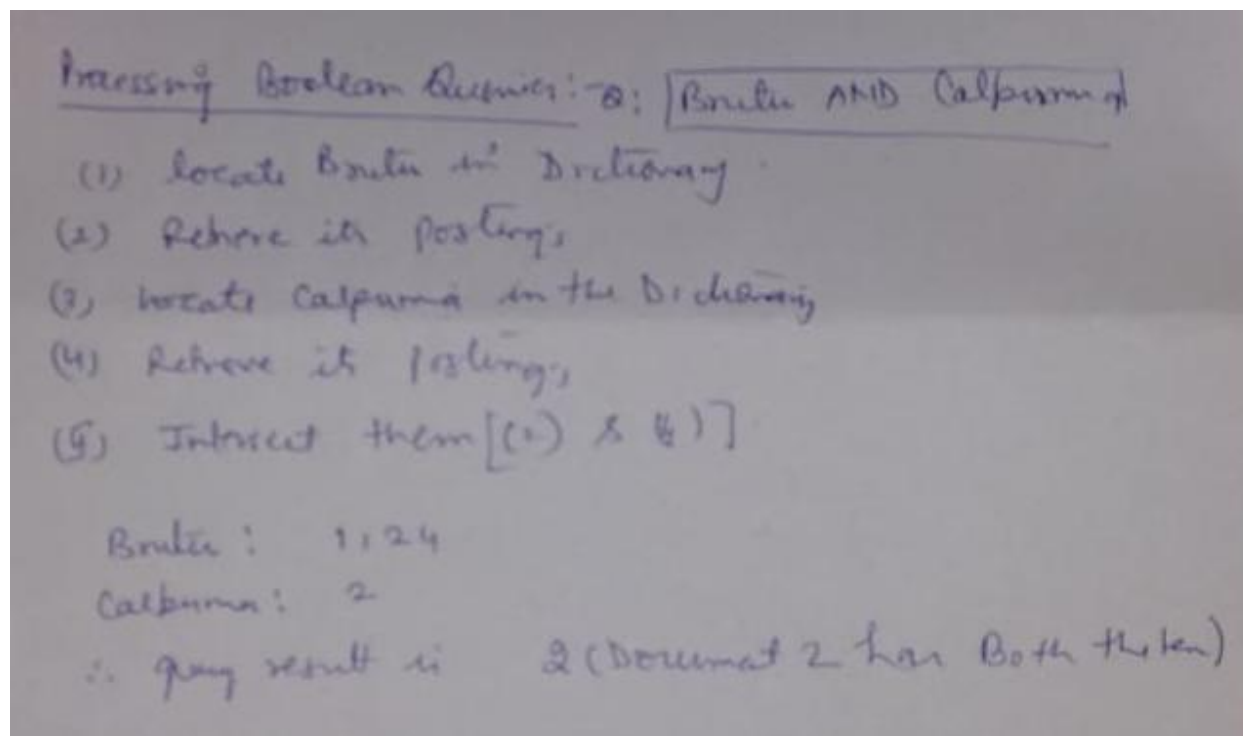 Processing Boolean Queries:- Q: Brutus AND Calpurnia
(1) locate Brutus in Dictionary
(2) Retrieve its postings
(3) locate Calpurnia in the Dictionary
(4) Retrieve its postings
(5) Intersect them [(2) & 4)]
Brutus: 1, 2 4
Calpurnia: 2
∴ query result is 2 (Document 2 has Both the ten)